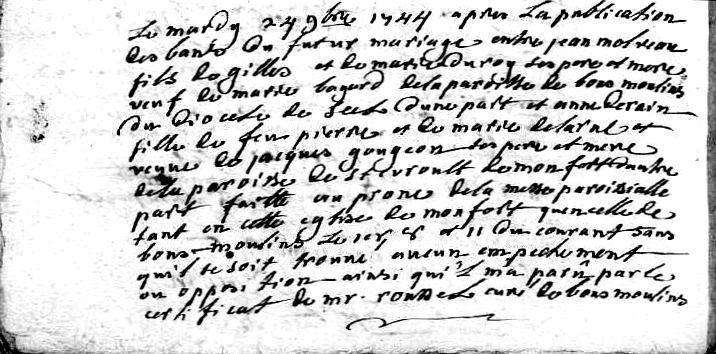 Le mardy 24 9bre 1744 apres La publication
des bants du futur mariage entre jean moreau
fils de gilles et de marie duroy ses pere et mere
veuf de marie bagard de la paroisse de bons moulins
du diocese de Sees d'une part et anne derain
fille de feu pierre et de marie delarue et
veuve de jacques gougeon ses pere et mere
de la paroisse de st evroult de monfort d'autre
part faitte au prone de la messe paroissialle
tant en cette eglise de monfort qu'en celle de
bons moulins le 1er 8 et 11 du courant sans
qu'il se soit trouvé aucun empechement
ou opposition ainsi qu'il m'a paru par le
certificat de mr. roussel curé de bons moulins